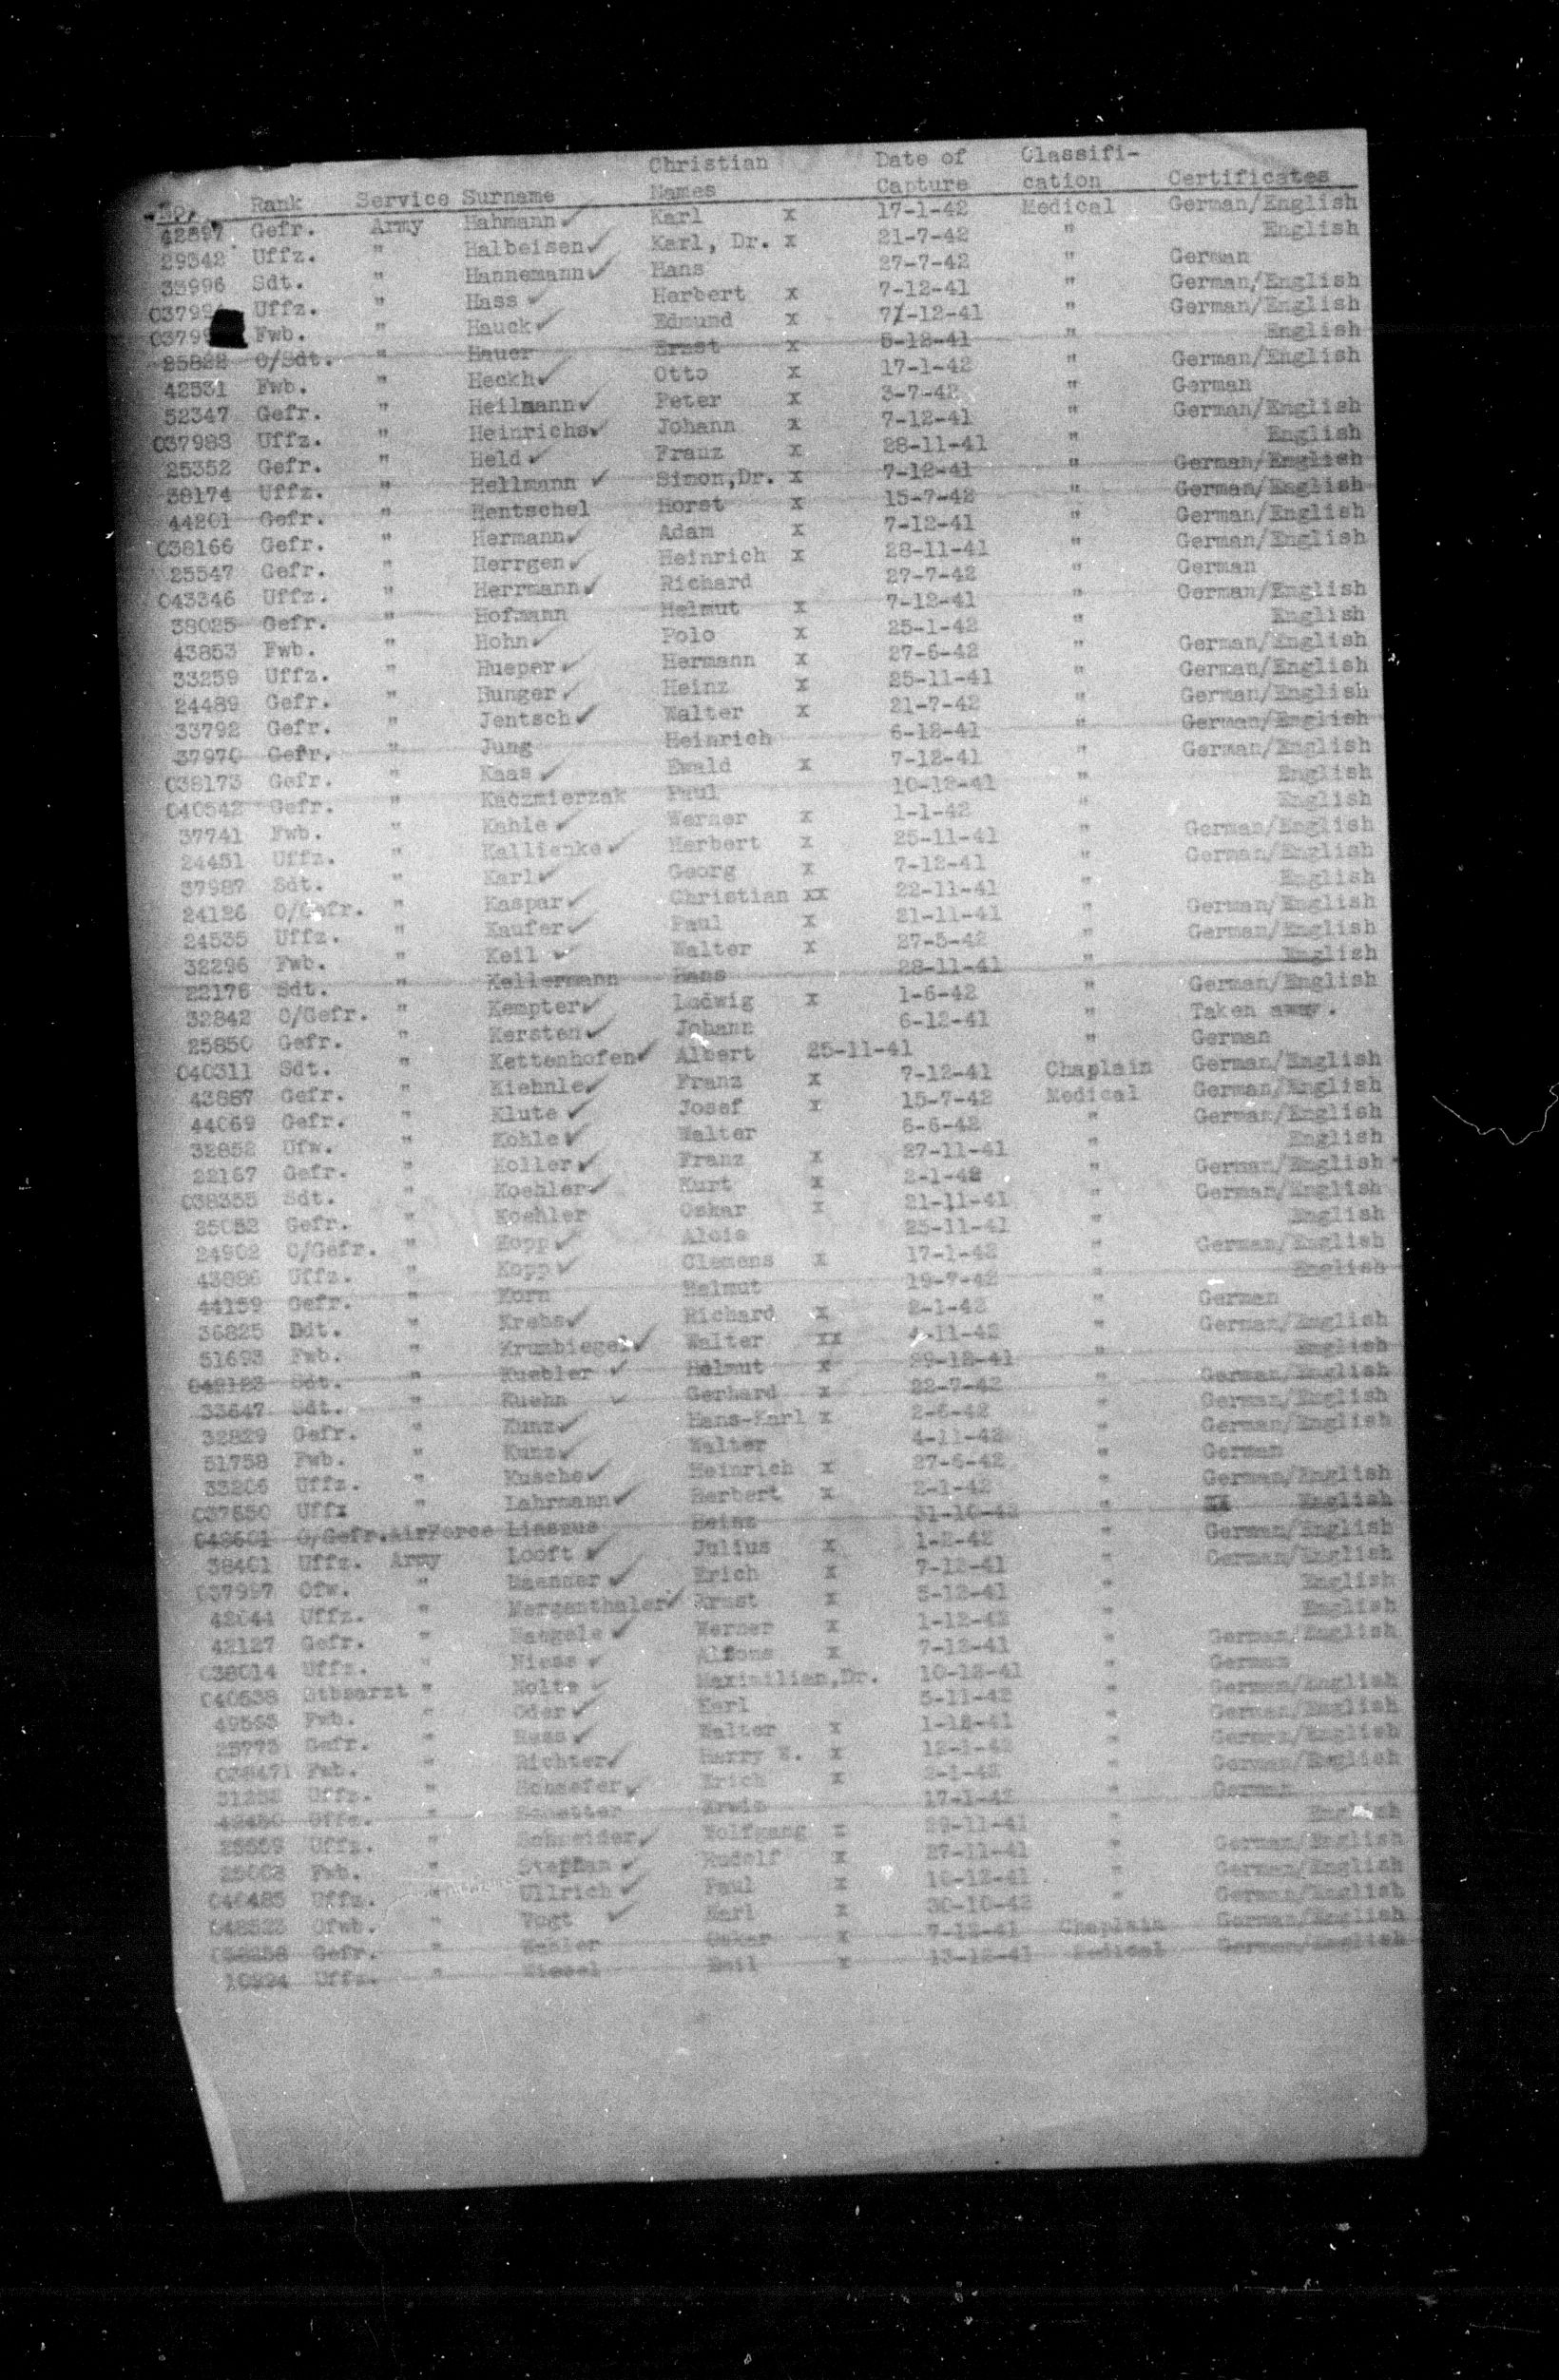 Christian Date of Classifi-
No. Rank Service Surname Names Capture cation Certificates
42897 Gefr. Army Hahmann Karl x 17-1-42 Medical German/English
29342 Uffz. " Halbeisen Karl, Dr. x 21-7-42 " English
33996 Sdt. " Hannemann Hans 27-7-42 " German
Uffz. " Hass Herbert x 7-12-41 " German/English
Fwb. " Hauck Edmund x 7-12-41 " German/English
25822 O/Sdt. " Hauer Ernst x 5-12-41 " English
42531 Fwb. " Heckh Otto x 17-1-42 " German/English
52347 Gefr. " Heilmann Peter x 3-7-42 " German
037983 Uffz. " Heinrichs Johann x 7-12-41 " German/English
25352 Gefr. " Held Franz x 28-11-41 " English
38174 Uffz. " Hellmann Simon,Dr. x 7-12-41 " German/English
44201 Gefr. " Hentschel Horst x 15-7-42 " German/English
038166 Gefr. " Hermann Adam x 7-12-41 " German/English
25547 Gefr. " Herrgen Heinrich x 28-11-41 " German/English
043346 Uffz. " Herrmann Richard 27-7-42 " German
38025 Gefr. " Hofmann Helmut x 7-12-41 " German/English
43853 Fwb. " Hohn Polo x 25-1-42 " English
33259 Uffz. " Hueper Hermann x 27-6-42 " German/English
24489 Gefr. " Hunger Heinz x 25-11-41 " German/English
33792 Gefr. " Jentsch Walter x 21-7-42 " German/English
37970 Gefr. " Jung Heinrich 6-12-41 " German/English
038173 Gefr. " Kaas Ewald x 7-12-41 " German/English
040542 Gefr. " Kaczmierzak Paul 10-12-41 " English
37741 Fwb. " Kahle Werner x 1-1-42 " English
24451 Uffz. " Kallienke Herbert x 25-11-41 " German/English
37987 Sdt. " Karl Georg x 7-12-41 " German/English
24126 O/Gefr. " Kaspar Christian xx 22-11-41 " English
24535 Uffz. " Kaufer Paul x 21-11-41 " German/English
32296 Fwb. " Keil Walter x 27-5-42 " German/English
22176 Sdt. " Kellermann Hans 28-11-41 " English
32842 O/Gefr. " Kempter Ludwig x 1-6-42 " German/English
25850 Gefr. " Kersten Johann 6-12-41 " Taken away.
040311 Sdt. " Kettenhofen Albert 25-11-41 " German
43887 Gefr. " Kiehnle Franz x 7-12-41 Chaplain German/English
44069 Gefr. " Klute Josef x 15-7-42 Medical German/English
32852 Ufw. " Kohle Walter 6-6-42 " German/English
22167 Gefr. " Koller Franz x 27-11-41 " English
038355 Sdt. " Koehler Kurt x 2-1-42 " German/English
25052 Gefr. " Koehler Oskar x 21-11-41 " German/English
24902 O/Gefr. " Kopp Alois 25-11-41 " English
43886 Uffz. " Kopp Clemens x 17-1-42 " German/English
44159 Gefr. " Korn Helmut 19-7-42 " English
36825 Sdt. " Krebs Richard x 2-1-42 " German
51693 Fwb. " Krumbiegel Walter xx 4-11-42 " German/English
042123 Sdt. " Kuebler Helmut x 29-12-41 " English
33647 Sdt. " Kuehn Gerhard x 22-7-42 " German/English
32829 Gefr. " Kunz Hans-Karl x 2-6-42 " German/English
51758 Fwb. " Kunz Walter 4-11-42 " German/English
33206 Uffz. " Kusche Heinrich x 27-6-42 " German
037650 Uffz " Lahrmann Herbert x 2-1-42 " German/English
048601 O/Gefr. AirForce Liaszus Heinz 31-10-42 " English
38401 Uffz. Army Looft Julius x 1-2-42 " German/English
037997 Ofw. " Maenner Erich x 7-12-41 " German/English
42044 Uffz. " Mergenthaler Ernst x 5-12-41 " English
42127 Gefr. " Werner x 1-12-42 " English
038014 Uffz. " Niess Alfons x 7-12-41 " German/English
040538 Stbsarzt " Nolte Maximilian,Dr. 10-12-41 " German
Fwb. " Oder Karl 5-11-42 " German/English
25773 Gefr. " Walter x 1-12-41 " German/English
038471 Fwb. " Richter Harry W. x 12-1-42 " German/English
Uffz. " Schaefer Erich x 2-1-42 " German/English
42450 Uffz. " Erwin 17-1-42 " German
25559 Uffz. " Schneider Wolfgang x 29-11-41 " English
Fwb. " Stephan Rudolf x 27-11-41 " German/English
040485 Uffz. " Ullrich Paul x 10-12-41 " German/English
048523 Ofwb. " Vogt Karl x 30-10-42 " German/English
Gefr. " Oskar x 7-12-41 Chaplain German/English
10224 Uffz. " Wiesel Emil x 13-12-41 Medical German/English